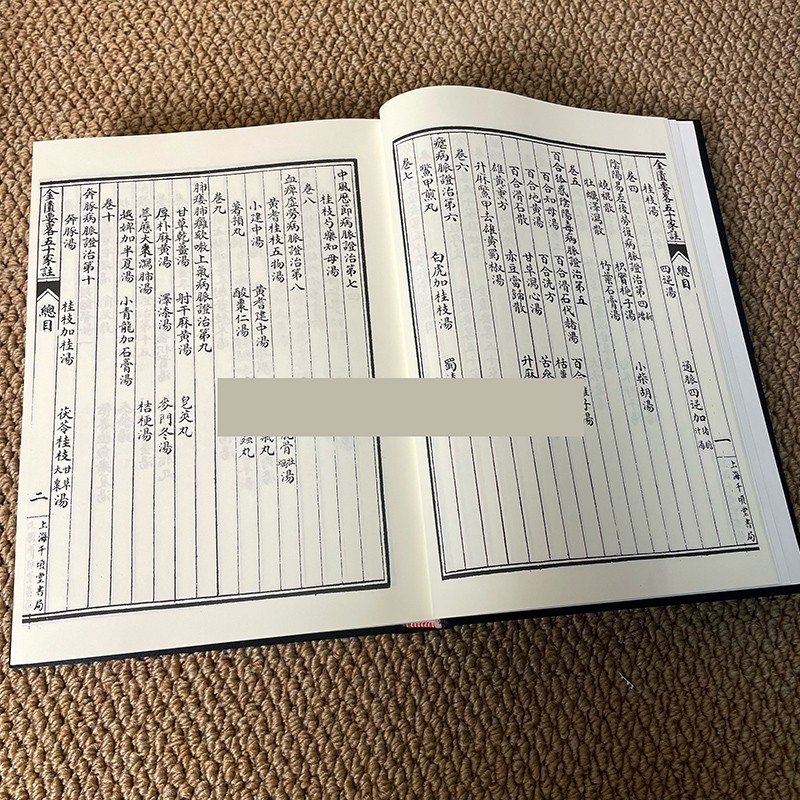 金匱要略五十家註 總目 一 上海千頃堂書局
桂枝湯 四逆湯 通脈四逆加猪胆汁湯
卷四
陰陽易差後勞復病脈證治第四增新
燒裩散 枳實梔子湯 小柴胡湯
牡蠣澤瀉散 竹葉石膏湯
卷五
百合狐惑陰陽毒病脈證治第五
百合知母湯 百合滑石代赭湯 百合子湯
百合地黃湯 百合洗方
百合滑石散 甘草瀉心湯 苦參
雄黃熏方 赤豆當歸散 升麻
升麻鱉甲去雄黃蜀椒湯
卷六
瘧病脈證治第六
鱉甲煎丸 白虎加桂枝湯 蜀
卷七
中風歷節病脈證治第七
桂枝芍藥知母湯
卷八
血痺虛勞病脈證治第八
黃耆桂枝五物湯 骨牡蠣湯
小建中湯 黃耆建中湯 氣丸
薯蕷丸 酸棗仁湯 蟲丸
卷九
肺痿肺癰欬嗽上氣病脈證治第九
甘草乾薑湯 射干麻黃湯 皂莢丸
厚朴麻黃湯 澤漆湯 麥門冬湯
葶藶大棗瀉肺湯 桔梗湯
越婢加半夏湯 小青龍加石膏湯
卷十
奔豚病脈證治第十
奔豚湯 桂枝加桂湯 茯苓桂枝甘草大棗湯
金匱要略五十家註 總目 二 上海千頃堂書局